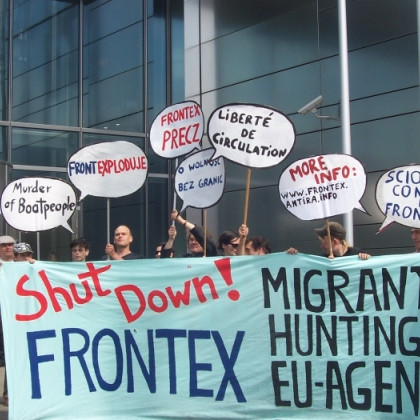 Murder of
of Boatpeople
FRONTEXPLODUJE
FRONTEX
PRECZ
O WOLNOŚĆ
BEZ GRANIC
LIBERTÉ
DE
CIRCULATION
MORE
INFO:
WWW.FRONTEX.
ANTIRA.INFO
SCIO
CON
FRON
Shut Down!
FRONTEX
MIGRANT
HUNTING
EU-AGEN